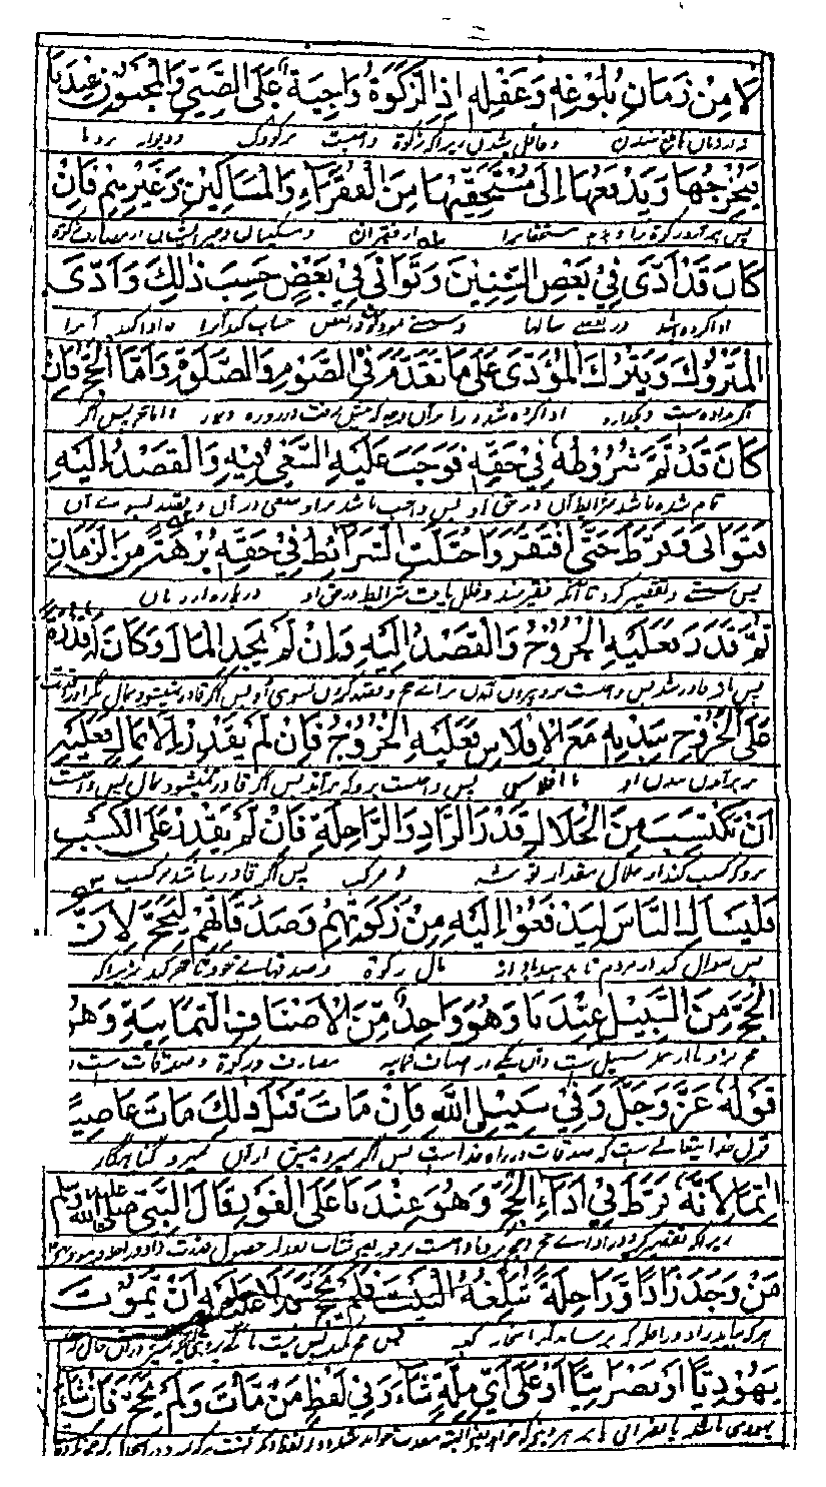 لَا مِنْ زَمَانِ بُلُوْغِهٖ وَعَقْلِهٖ اِذِ الزَّكٰوةُ وَاجِبَةٌ عَلَى الصَّبِيِّ وَالْمَجْنُوْنِ عِنْدَنَا
نه از زمان بالغ شدن و عاقل شدن زیراکه زکوة واجبست بر کودک و دیوانه نزد ما
فَيُخْرِجُهَا وَيَدْفَعُهَا اِلٰى مُسْتَحِقِّيْهَا مِنَ الْفُقَرَآءِ وَالْمَسَاكِيْنِ وَغَيْرِهِمْ فَاِنْ
پس بر آرد زکوة را و بدهد مستحقانرا از فقیران و مسکینان و غیر ایشان از مصارف زکوة
كَانَ قَدْ اَدّٰى فِيْ بَعْضِ السِّنِيْنَ وَتَوَانٰى فِيْ بَعْضٍ حَسَبَ ذٰلِكَ وَاَدّٰى
ادا کرده باشد در بعضے سالها و سستی نموده در بعض حساب کند آنرا و ادا کند آنرا
الْمَتْرُوْكَ وَيَتْرُكُ الْمُؤَدّٰى عَلٰى مَا تَقَدَّمَ فِي الصَّوْمِ وَالصَّلٰوةِ وَاَمَّا الْحَجُّ فَاِنْ
و بگذارد ادا کرده شده را بر آن وجه که پیش رفت در روزه و نماز و اما حج پس اگر
كَانَ قَدْ تَمَّ شُرُوْطُهٗ فِيْ حَقِّهٖ فَوَجَبَ عَلَيْهِ السَّعْيُ فِيْهِ وَالْقَصْدُ اِلَيْهِ
تمام شده باشد شرایط آن در حق او پس واجب باشد بر او سعی در آن و قصد بسوے آن
فَتَوَانٰى وَفَرَّطَ حَتّٰى افْتَقَرَ وَاخْتَلَّتِ الشَّرَائِطُ فِيْ حَقِّهٖ بُرْهَةً مِّنَ الزَّمَانِ
پس سستی و تقصیر کرد تا آنکه فقیر شد و خلل یافت شرایط در حق او در پاره از زمان
ثُمَّ قَدَرَ فَعَلَيْهِ الْخُرُوْجُ وَالْقَصْدُ اِلَيْهِ وَاِنْ لَّمْ يَجِدِ الْمَالَ وَكَانَ لَهٗ قُدْرَةٌ
پس از قادر شد پس واجبست بر و بیرون آمدن براے حج و قصد کردن بسوی او
عَلَى الْخُرُوْجِ بِبَدَنِهٖ مَعَ الْاِفْلَاسِ فَعَلَيْهِ الْخُرُوْجُ فَاِنْ لَّمْ يَقْدِرْ اِلَّا بِمَالٍ فَعَلَيْهِ
بر برآمدن ببدن او با افلاس پس واجبست بروکه برآید پس اگر قادر نمیشود بمال پس واجبست
اَنْ يَّكْتَسِبَ مِنَ الْحَلَالِ قَدْرَ الزَّادِ وَالرَّاحِلَةِ فَاِنْ لَّمْ يَقْدِرْ عَلَى الْكَسْبِ
بروکه کسب کند از حلال مقدار توشه و مرکب پس اگر قادر نباشد بر کسب
فَلْيَسْاَلِ النَّاسَ لِيَدْفَعُوْا اِلَيْهِ مِنْ زَكٰوتِهِمْ وَصَدَقَاتِهِمْ لِيَحُجَّ لِاَنَّ
پس سوال کند از مردم تا بدهند او را از مال زکوة و صدقهاے خود تا حج کند زیراکه
الْحَجَّ مِنَ السَّبِيْلِ عِنْدَنَا وَهُوَ وَاحِدٌ مِّنَ الْاَصْنَافِ الثَّمَانِيَةِ وَهُوَ
حج نزد ما از سبیل ست و آن یکے از اصناف ثمانیه مصارف زکوة و صدقات ست
قَوْلُهٗ عَزَّ وَجَلَّ وَفِيْ سَبِيْلِ اللّٰهِ فَاِنْ مَاتَ قَبْلَ ذٰلِكَ مَاتَ عَاصِيًا
قول خدا یتعالے ست که صدقات در راه خداست پس اگر بمیرد پیش از آن بمیرد گناهگار
اِثْمًا لِاَنَّهٗ فَرَّطَ فِيْ اَدَآءِ الْحَجِّ وَهُوَ عِنْدَنَا عَلَى الْفَوْرِ قَالَ النَّبِيُّ صلى الله عليه وسلم
زیراکه تقصیر کرد در اداے حج و حج نزد ما واجبست بر فور
مَنْ وَجَدَ زَادًا وَّرَاحِلَةً تُبَلِّغُهُ الْبَيْتَ فَلَمْ يَحُجَّ فَلَا عَلَيْهِ اَنْ يَّمُوْتَ
هر که بیابد زاد و راحله که برساند او را بخانه کعبه پس حج نکند پس نیست
يَهُوْدِيًّا اَوْ نَصْرَانِيًّا اَوْ عَلٰى اَيِّ مِلَّةٍ شَآءَ وَفِيْ لَفْظٍ مَنْ مَاتَ وَلَمْ يَحُجَّ فَاِنْ شَآءَ
یهودی باشد یا نصرانی